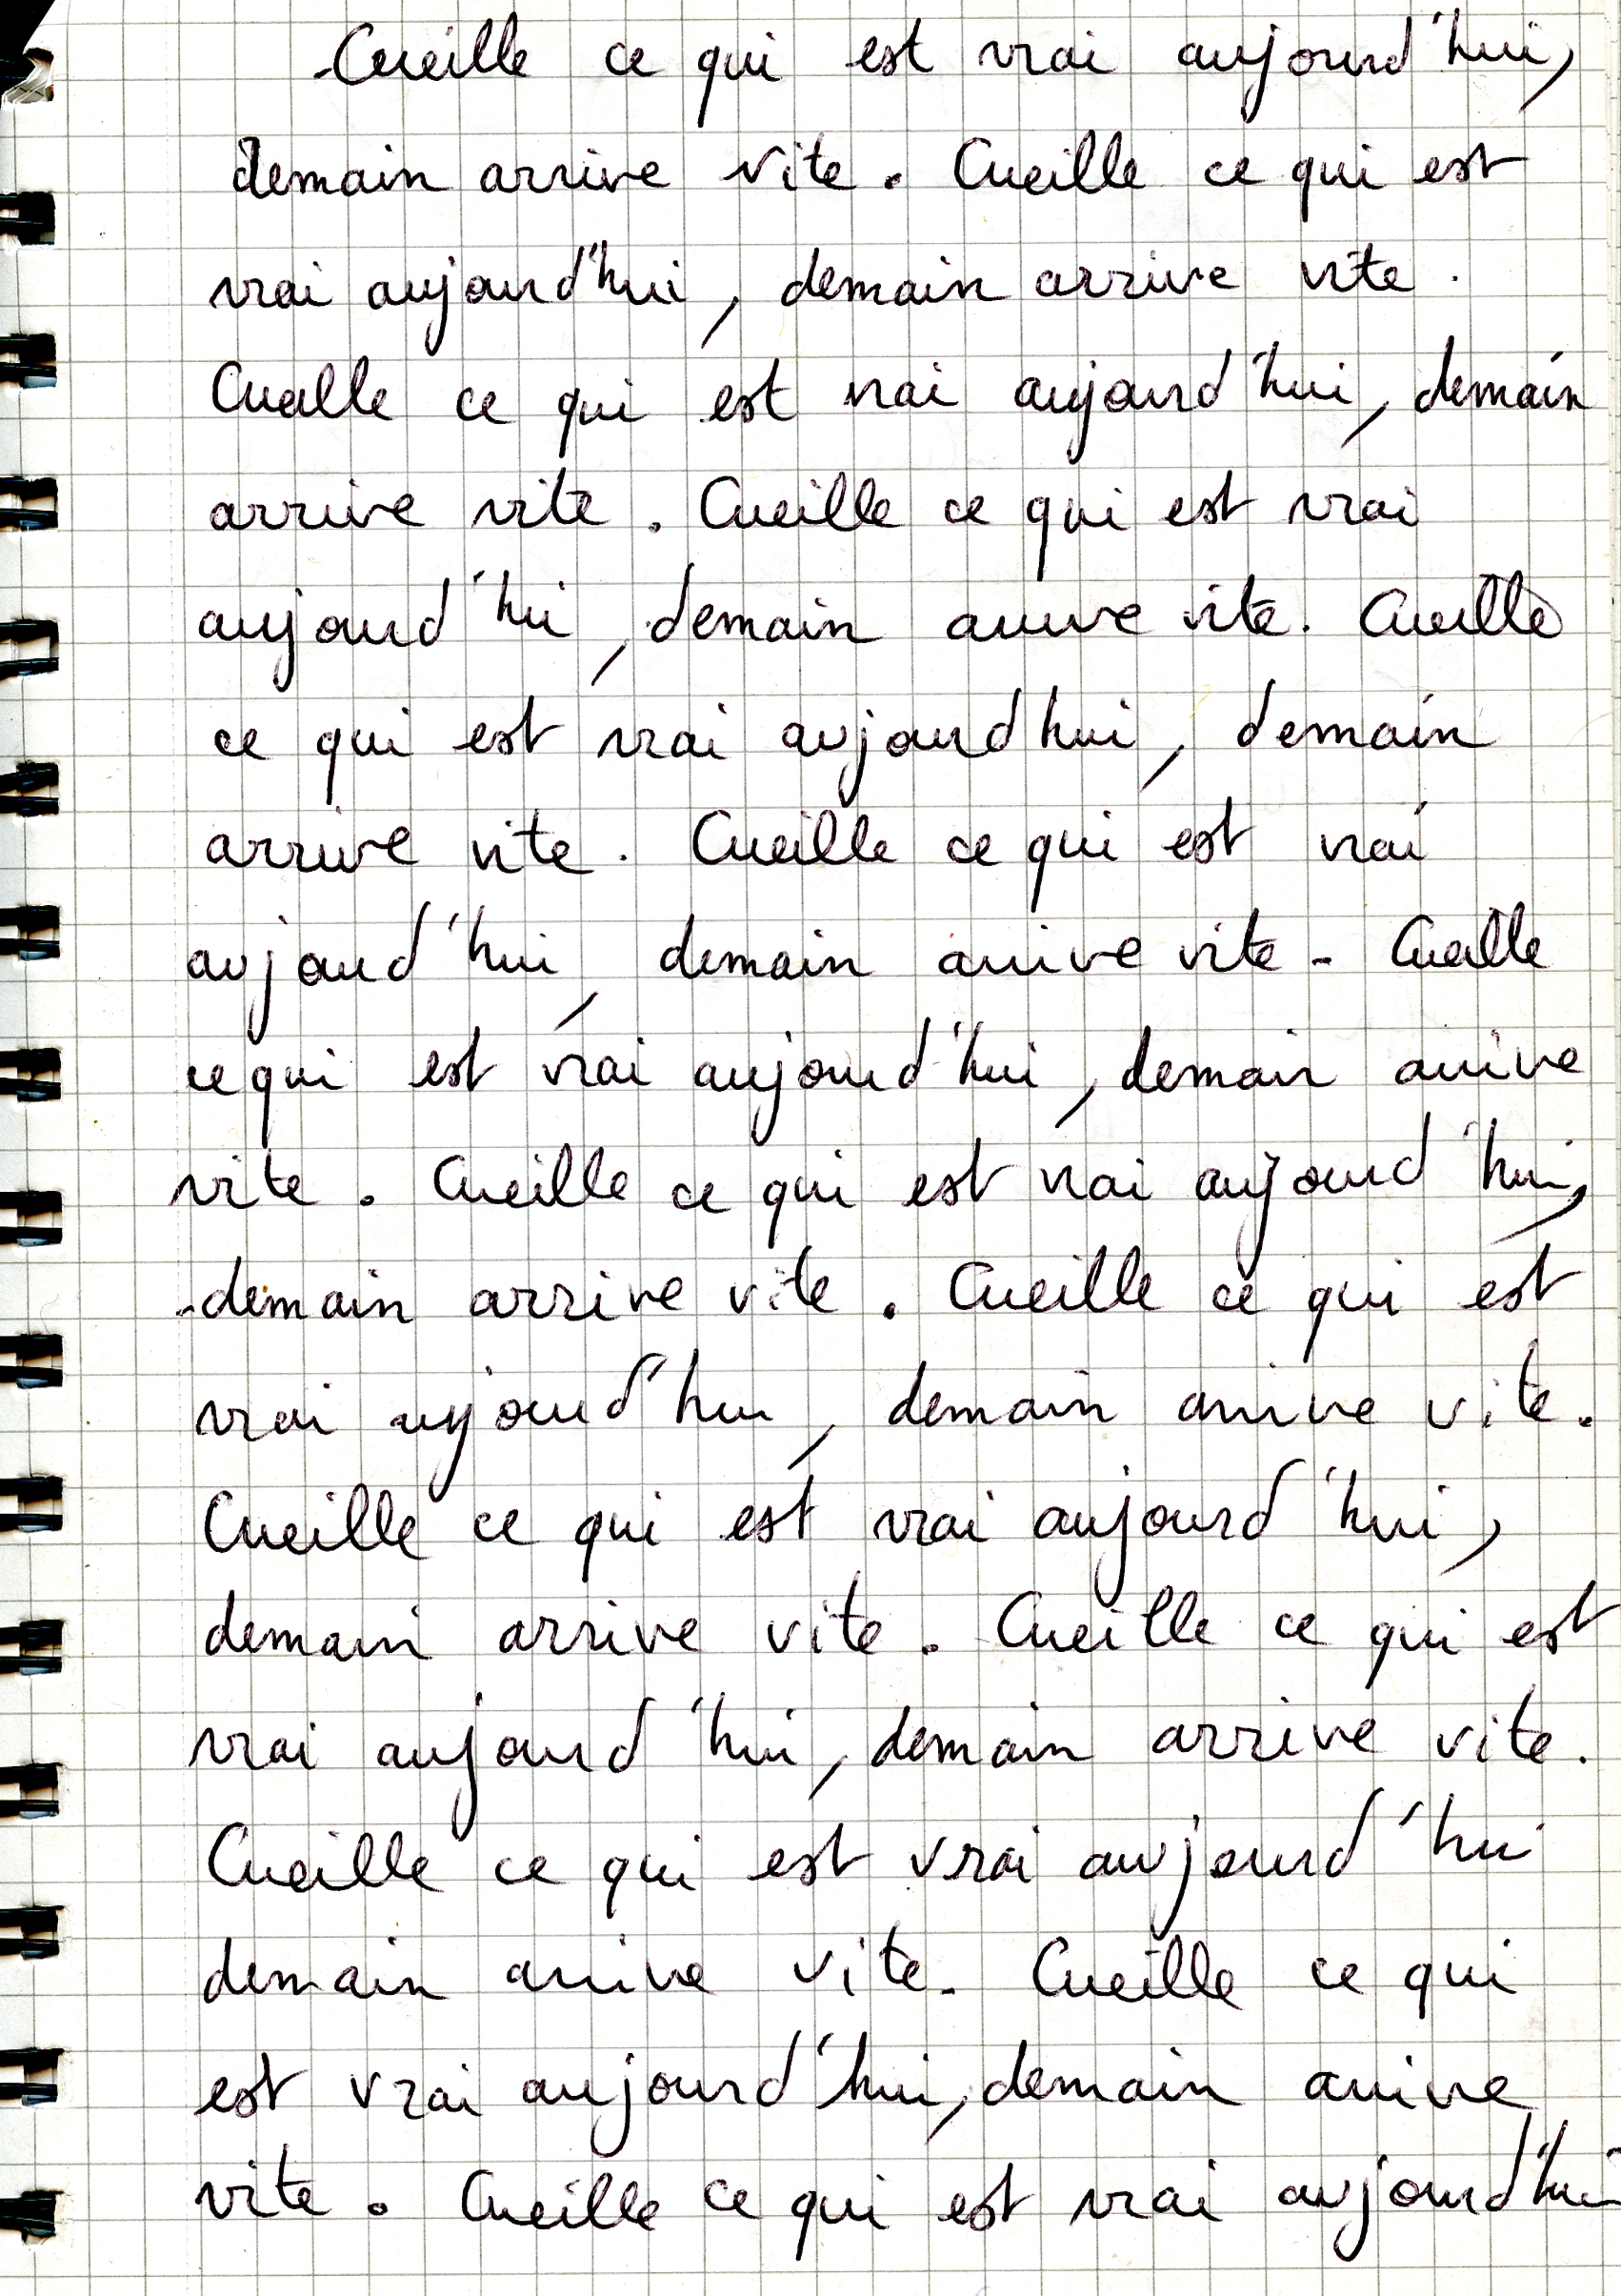 Cueille ce qui est vrai aujourd'hui,
demain arrive vite. Cueille ce qui est
vrai aujourd'hui, demain arrive vite.
Cueille ce qui est vrai aujourd'hui, demain
arrive vite. Cueille ce qui est vrai
aujourd'hui, demain arrive vite. Cueille
ce qui est vrai aujourd hui, demain
arrive vite. Cueille ce qui est vrai
aujourd'hui, demain arrive vite. Cueille
ce qui est vrai aujourd'hui, demain arrive
vite. Cueille ce qui est vrai aujourd'hui,
demain arrive vite. Cueille ce qui est
vrai aujourd'hui, demain arrive vite.
Cueille ce qui est vrai aujourd'hui,
demain arrive vite. Cueille ce qui est
vrai aujourd'hui, demain arrive vite.
Cueille ce qui est vrai aujourd'hui
demain arrive vite. Cueille ce qui
est vrai aujourd'hui, demain arrive
vite. Cueille ce qui est vrai aujourd'hui